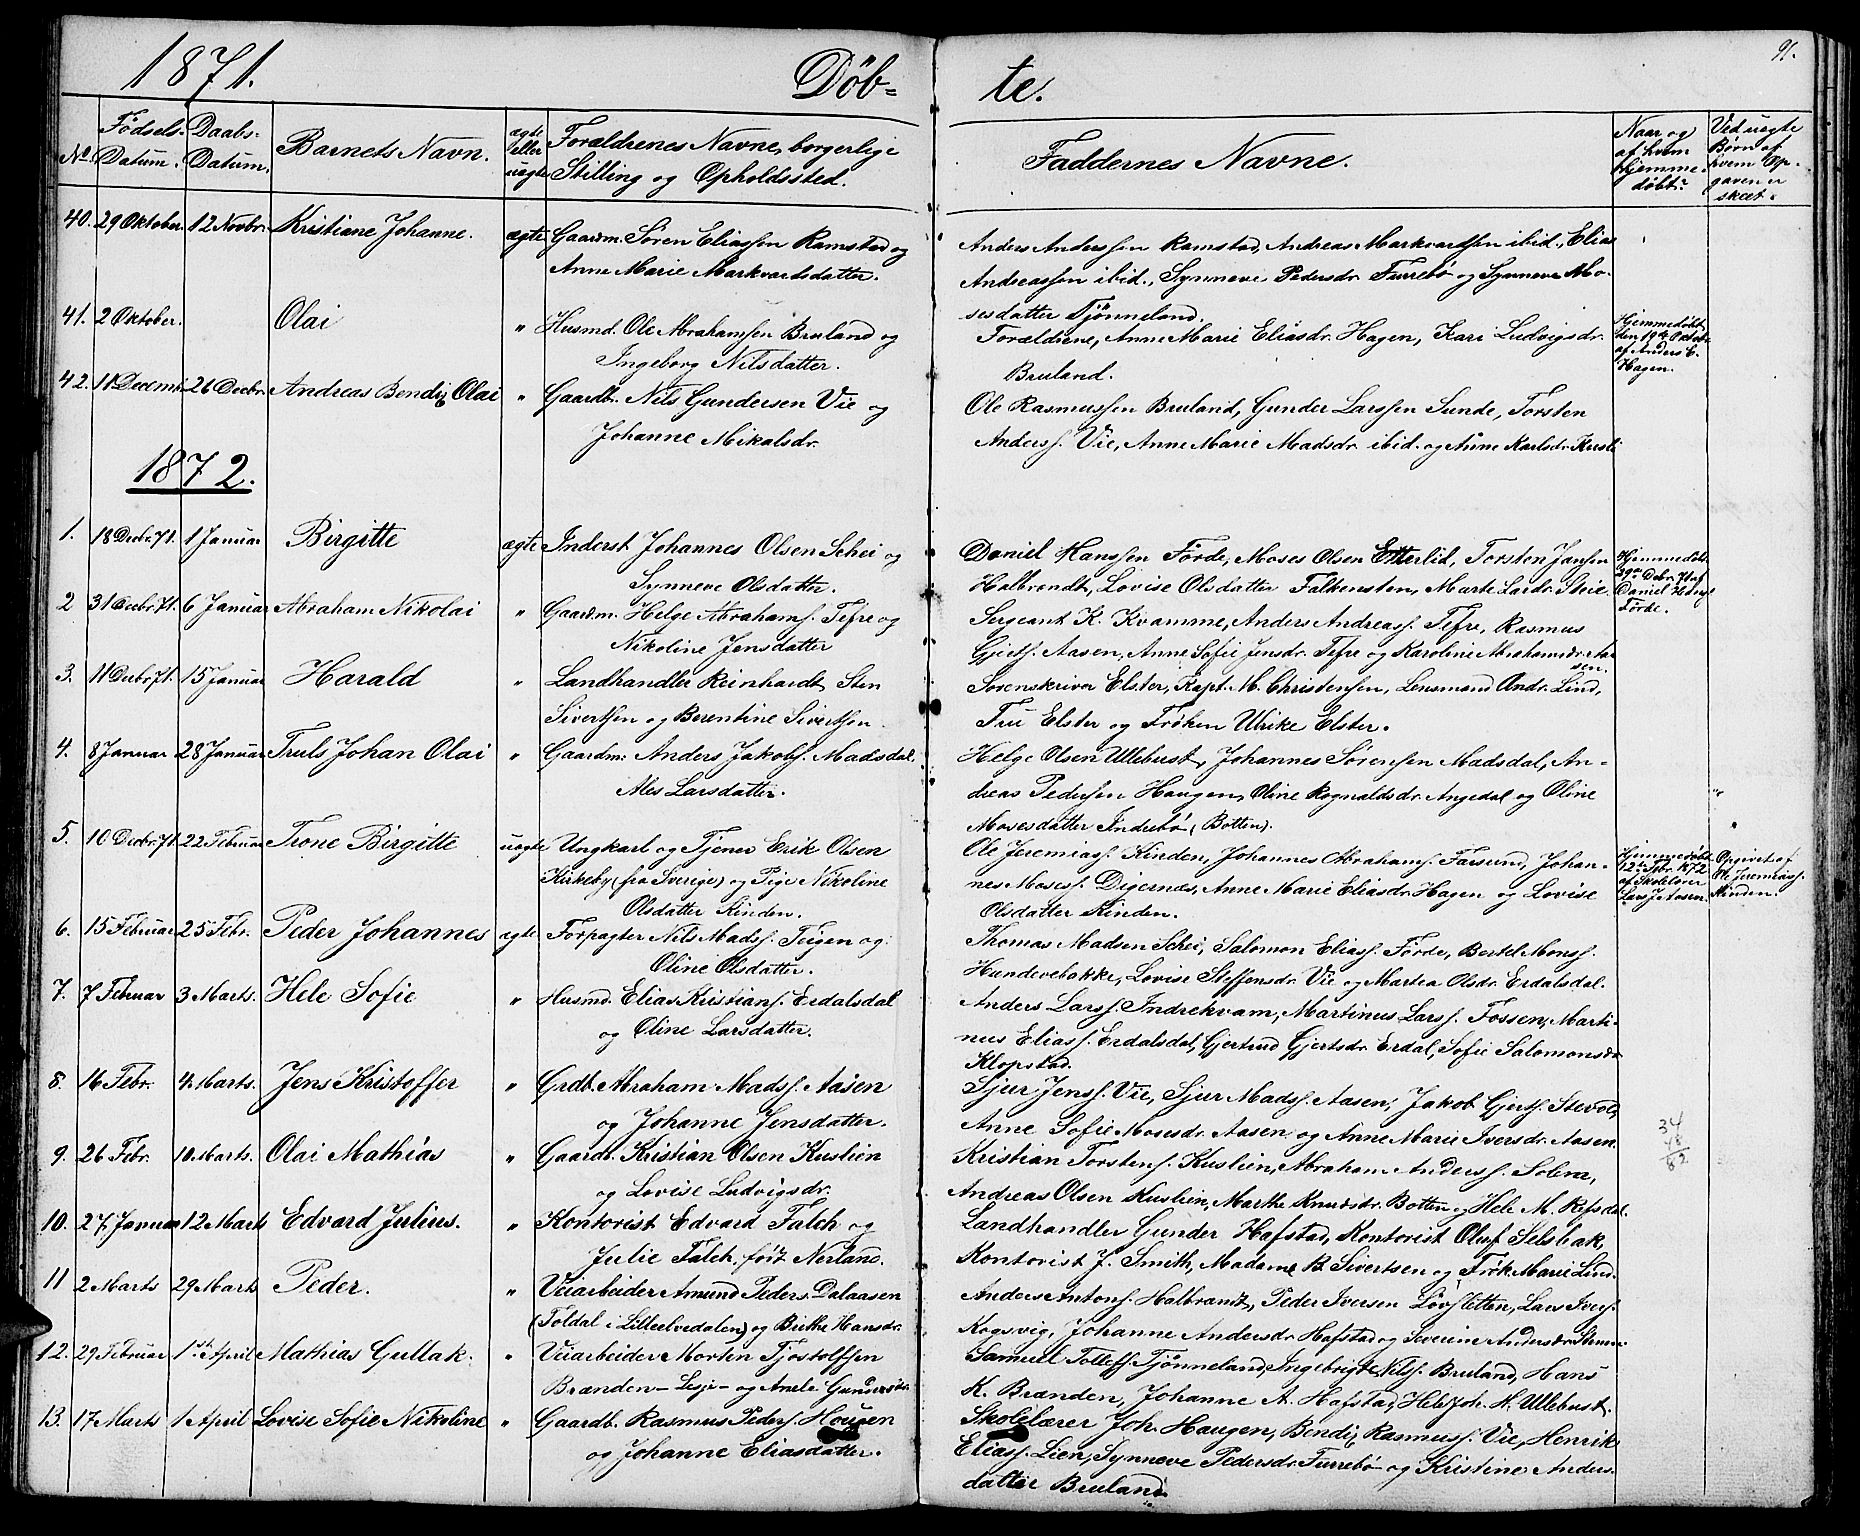 1871.
Döb-
te.
91.
No.
Födsels-
Datum.
Daabs-
Datum.
Barnets Navn.
ægte
eller
uægte
Forældrenes Navne, borgerlige
Stilling og Opholdssted.
Faddernes Navne.
Naar og
af hvem
hjemme-
döbt.
Ved uægte
Börn af
hvem Op-
gaven er
skeet.
40. 29 Oktober. 12 Novbr. Kristiane Johanne. ægte Gaardm. Sören Eliassen Ramstad og
Anne Marie Markvardsdatter.
Anders Anderssen Ramstad, Andreas Markvardsen ibid., Elias
Andreassen ibid., Synneve Pedersdr. Furrebö og Synneve Mo-
sesdatter Tjönneland.
41. 2 Oktober. Olai " Husmd. Ole Abrahamsen Bruland og
Ingeborg Nilsdatter.
Forældrene, Anne Marie Eliasdr. Hagen, Kari Ludvigsdr.
Bruland.
Hjemmedöbt
den 19de Oktob.
af Anders E.
Hagen.
42. 11 Decmbr. 26 Decbr. Andreas Bendix Olai " Gaardb. Nils Gundersen Vie og
Johanne Mikalsdr.
Ole Rasmussen Bruland, Gunder Larssen Sunde, Torsten
Anderss. Vie, Anne Marie Madsdr. ibid. og Anne Karlsdr.
1872.
1. 18 Decbr. 71. 1 Januar Birgitte ægte Inderst Johannes Olsen Schei og
Synneve Olsdatter.
Daniel Hanssen Förde, Moses Olsen Etterlid, Torsten Janssen
Halbrendt, Lovise Olsdatter Falkensten, Marte Larsdr. Steie.
Hjemmedöbt
Decbr. 71 af
Daniel
Förde.
2 31 Decbr. 71. 6 Januar Abraham Nikolai " Gaardm. Helge Abrahams. Tefre og
Nikoline Jensdatter
Sergeant K. Kvamme, Anders Andreass. Tefre, Rasmus
Gjerts. Aasen, Anne Sofie Jensdr. Tefre og Karoline Abrahamsdr. Aa-
sen.
3. 11 Decbr 71. 15 Januar Harald " Landhandler Reinhardt Sten
Sivertsen og Berentine Sivertsen.
Sorenskriver Elster, Kapt. M. Christensen, Lensmand Andr. Lind,
Fru Elster og Fröken Ulrike Elster.
4. 8 Januar 28 Januar Truls Johan Olai " Gaardm. Anders Jakobs. Madsdal.
Ales Larsdatter.
Helge Olsen Ullebust, Johannes Sörensen Madsdal, An-
dreas Pedersen Haugen, Oline Rognaldsdr. Angedal og Oline
Mosesdatter Indrebö (Botten).
5. 10 Decbr. 71. 22 Februar Trone Birgitte uægte Ungkarl og Tjener Erik Olsen
Kirkeby (fra Sverige) og Pige Nikoline
Olsdatter Kinden.
Ole Jeremiass. Kinden, Johannes Abrahams. Farsund, Johan-
nes Moses. Digernæs, Anne Marie Eliasdr. Hagen og Lovise
Olsdatter Kinden.
Hjemmedöbt
12te Febr. 1872
af Skolelærer
Lars J. Aasen.
Opgivet af
Ole Jeremiass.
Kinden.
6. 15 Februar 25 Febr. Peder Johannes ægte Forpagter Nils Madss. Teigen og
Oline Olsdatter.
Thomas Madsen Schei, Salomon Eliass. Förde, Bertel Monss.
Hundevebakke, Lovise Steffensdr. Vie og Martea Olsdr. Erdalsdal.
7. 7 Februar 3 Marts. Hele Sofie " Husmd. Elias Kristians. Erdalsdal
og Oline Larsdatter.
Anders Larss. Indrekvam, Martinus Larss. Fossen, Marti-
nus Eliass. Erdalsdal, Gjertrud Gjertsdr. Erdal, Sofie Salomonsdr.
Klopstad.
8. 16 Febr. 4 Marts. Jens Kristoffer " Grdb. Abraham Madss. Aasen
og Johanne Jensdatter.
Sjur Jenss. Vie, Sjur Madss. Aasen, Jakob Gjerts. Stevol,
Anne Sofie Mosesdr. Aasen og Anne Marie Iversdr. Aasen.
34
48
82
9. 26 Febr. 10. Marts. Olai Mathias " Gaardb. Kristian Olsen Kuslien
og Lovise Ludvigsdr.
Kristian Torstens. Kuslien, Abraham Anderss. Solem,
Andreas Olsen Kuslien, Marthe Knudsdr. Botten og Hele M. Refsdal.
10. 27. Januar 12 Marts Edvard Julius. " Kontorist Edvard Falch og
Julie Falch, född Nerland.
Landhandler Gunder Hafstad, Kontorist Oluf Selsbak,
Kontorist J. Smith, Madame B. Sivertsen og Frök. Marie Lind.
11 2 Marts 29 Marts Peder. " Veiarbeider Amund Peders. Dalaasen
(Foldal i Lilleelvedalen) og Birthe Hansdr.
Anders Antons. Halbrandt, Peder Iversen Lövsletten, Lars Ivers.
Kogsvig, Johanne Andersdr. Hafstad og Severine Andersdr.
12. 29 Februar 1ste April Mathias Gullak. " Veiarbeider Morten Tjostolfsen
Brænden - Lesje - og Anele Gundersdr.
Samuel Tollefs. Tjönneland, Ingebrigt Nilss. Bruland, Hans
K. Brænden, Johanne A. Hafstad, Hele Joh. H. Ullebust.
13. 17 Marts 1 April Lovise Sofie Nikoline " Gaardb. Rasmus Peders. Hougen
og Johanne Eliasdatter.
Skolelærer Joh. Haugen, Bendix Rasmuss. Vie, Henrik
Eliass. Lien, Synneve Pedersdr. Furrebö og Kristine Anders-
datter Bruland.